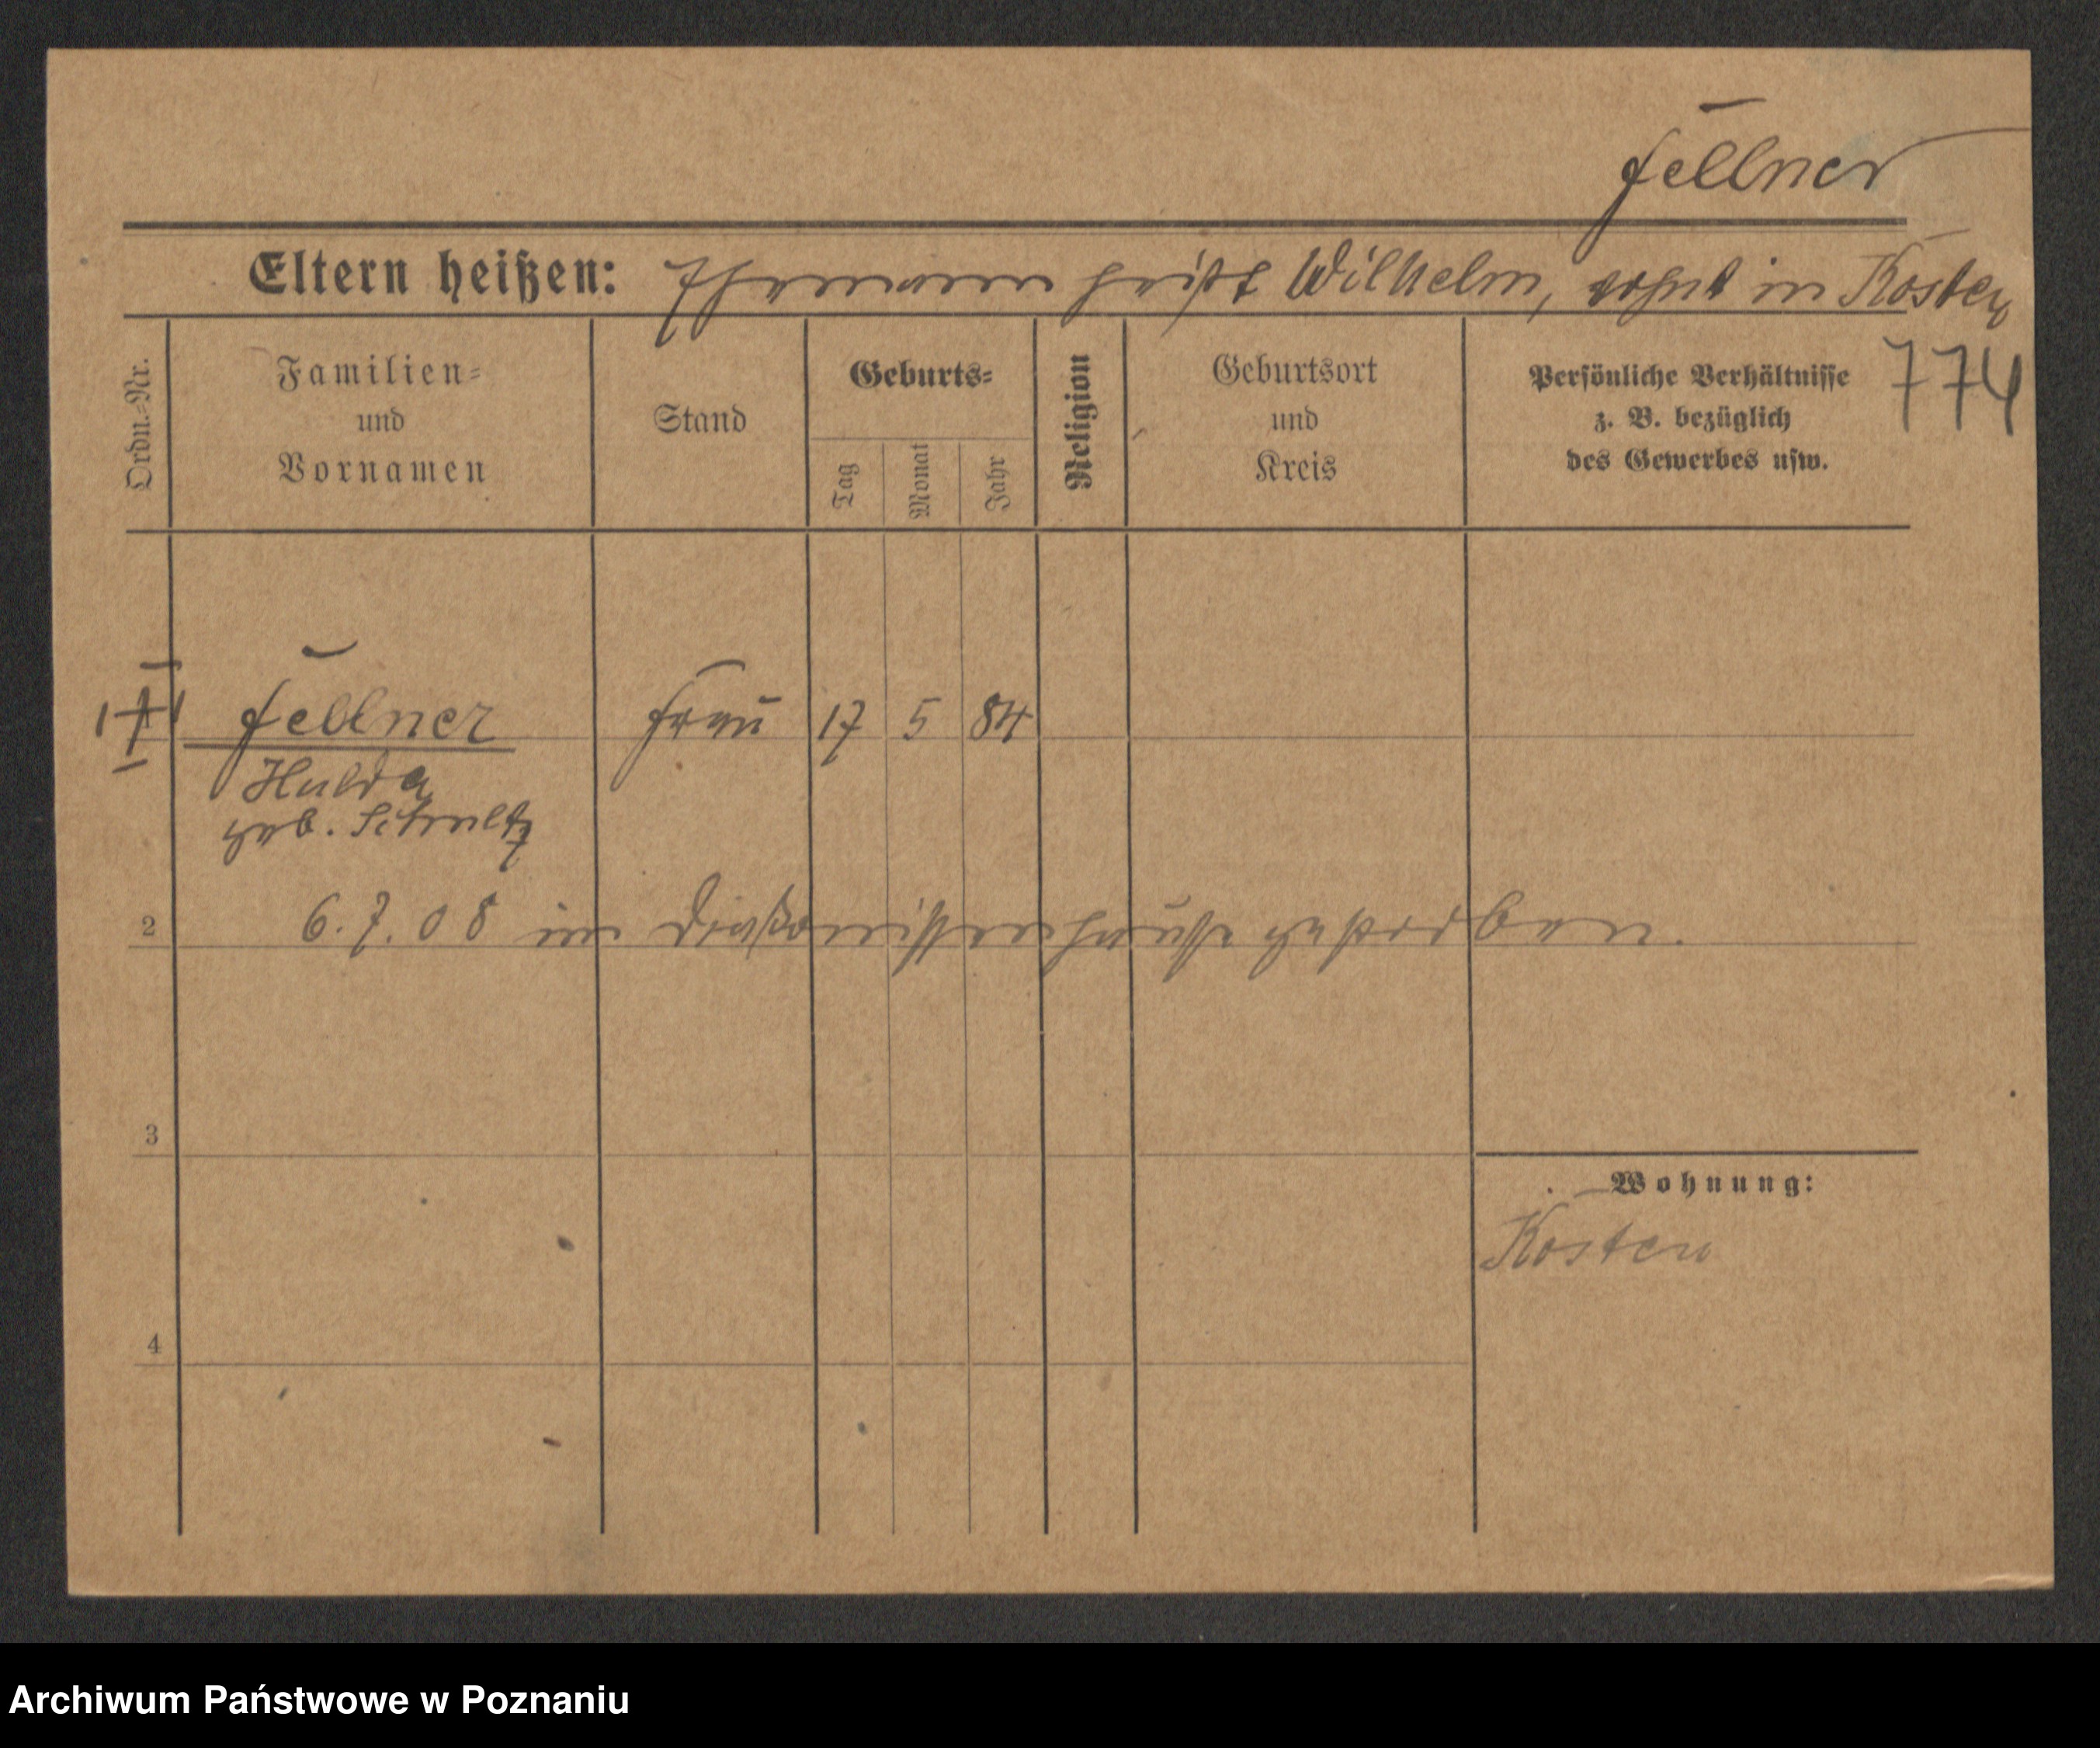 Fellner
Eltern heißen: Ehemann heißt Wilhelm, wohnt in Kosten
774
Ordn.-Nr.
Familien- und Vornamen
Stand
Geburts-
Tag
Monat
Jahr
Religion
Geburtsort und Kreis
Persönliche Verhältnisse
z. B. bezüglich
des Gewerbes usw.
Fellner Frau 17 5 84
Hulda
geb. Schultz
2 6.7.08 im Diakonissenhause gestorben.
3
Wohnung:
Kosten
4
Archiwum Państwowe w Poznaniu